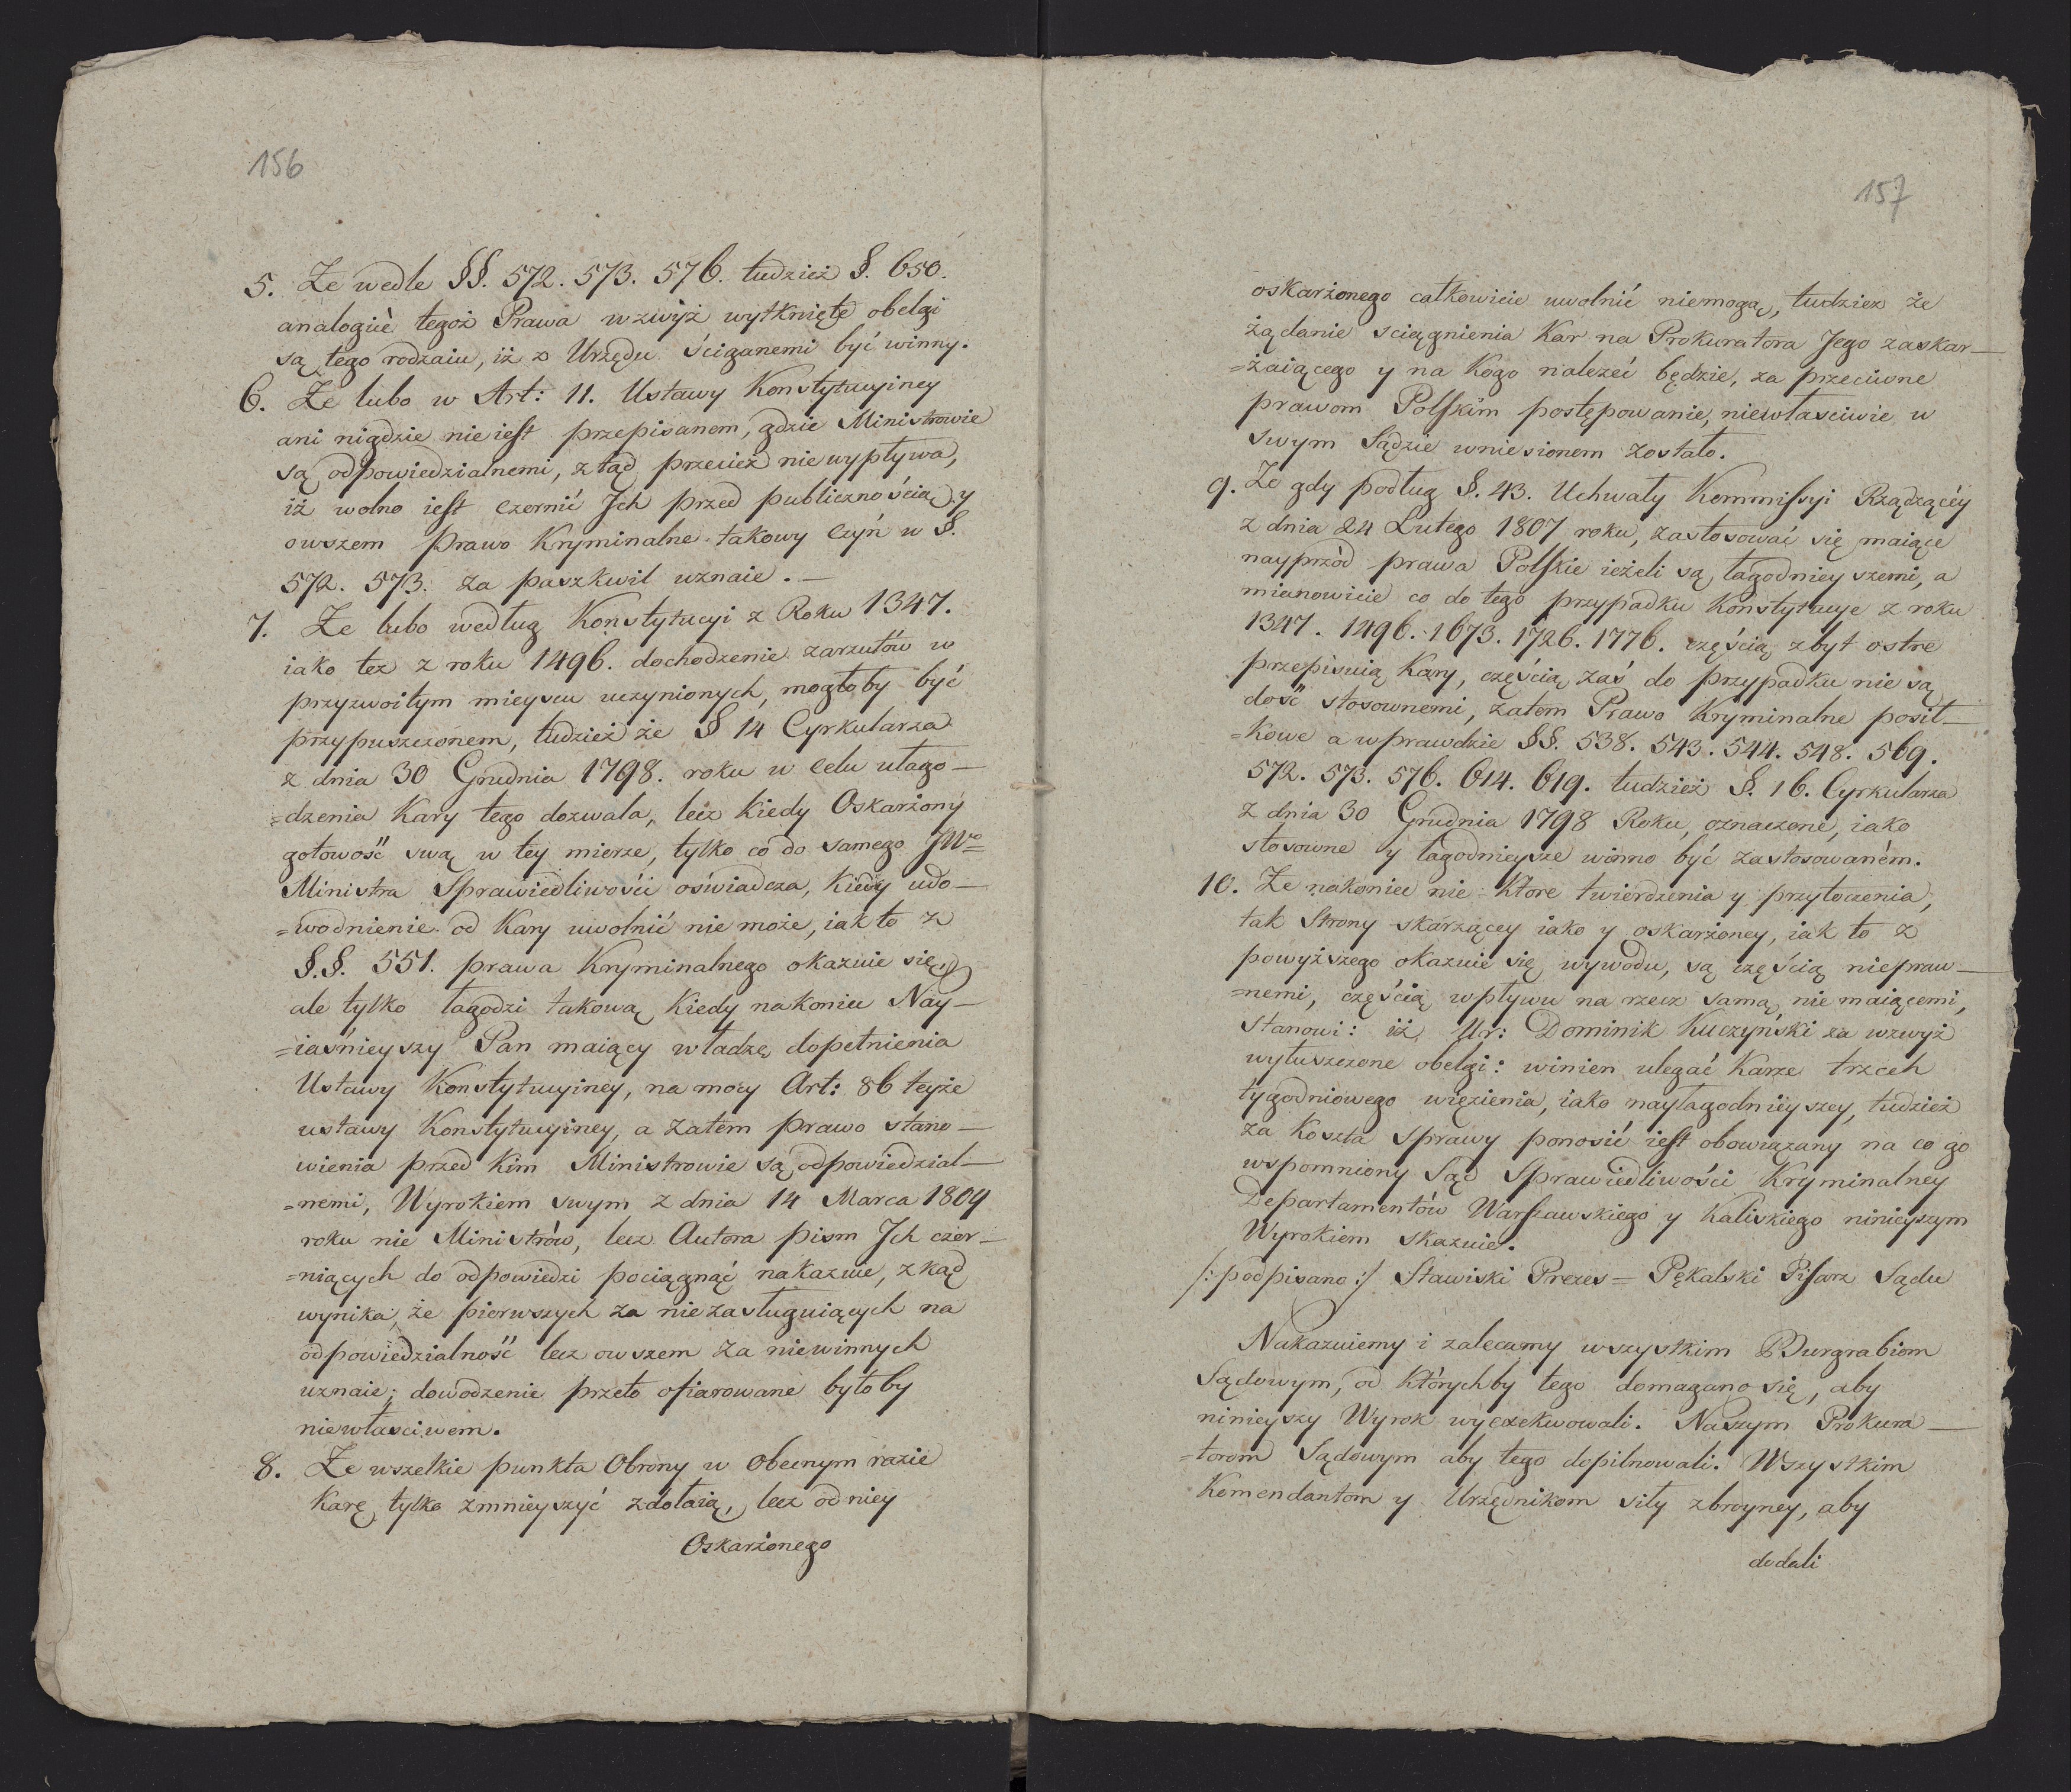 156
5. Że wedle §§. 572. 573. 576. tudzież §. 650.
analogiie tegoż Prawa wzwyż wytknięte obelgi
są tego rodzaiu, iż z Urzędu ściganemi być winny.
6. Że lubo w Art: 11. Ustawy Konstytucyiney
ani nigdzie nie iest przepisanem, gdzie Ministrowie
są odpowiedzialnemi, z tąd przecież nie wypływa,
iż wolno iest czernić Jch przed publicznością, y
owszem prawo Kryminalne takowy czyń w §.
572. 573. za paszkwil uznaie. —
7. Że lubo według Konstytucyi z Roku 1347.
iako tez z roku 1496. dochodzenie zarzutów w
przyzwoitym mieyscu uczynionych, mogłoby być
przypuszczonem, tudzież że § 14 Cyrkularza
z dnia 30 Grudnia 1798. roku w celu ułago—
=dzenia Kary tego dozwala, lecz kiedy Oskarżony
gotowość swą w tey mierze, tylko co do samego JWo
Ministra Sprawiedliwości oświadcza, kiedy udo—
=wodnienie od Kary uwolnić nie może, iak to z
§.§. 551. prawa Kryminalnego okazuie się,
ale tylko łagodzi takową, Kiedy nakoniec Nay—
=iaśnieyszy Pan maiący władzę dopełnienia
Ustawy Konstytucyiney, na mocy Art: 86 teyże
ustawy Konstytucyiney, a zatem prawo stano—
wienia przed kim Ministrowie są odpowiedzial—
=nemi, Wyrokiem swym z dnia 14 Marca 1809
roku nie Ministrów, lecz Autora pism Jch czer—
=niących do odpowiedzi pociągnąć nakazuie, z kąd
wynika, że pierwszych za nie zasługuiących na
odpowiedzialność lecz owszem za niewinnych
uznaie; dowodzenie przeto ofiarowane byłoby
niewłasciwem.
8. Że wszelkie punkta Obrony w Obecnym razie
Karę tylko zmnieyszyć zdołaią, lecz od niey
Oskarżonego
157
oskarżonego całkowicie uwolnić niemogą, tudziez że
żądanie sciągnienia Kar na Prokuratora Jego zaskar—
=żaiącego y na Kogo nalezeć będzie, za przeciwne
prawom Polskim postępowanie, niewłasciwie w
swym Sądzie wniesionem zostało.
9. Że gdy podług §. 43. Uchwały Kommissyi Rządzącéy
z dnia 24 Lutego 1807 roku, zastosować się maiące
nayprzód prawa Polskie ieżeli są łagodnieyszemi, a
mianowicie co do tego przypadku Konstytucye z roku
1347. 1496. 1673. 1726. 1776. częścią zbyt ostre
przepisuią Kary, częścią zaś do przypadku nie są
dość stosownemi, zatem Prawo Kryminalne posił—
=kowe a wprawdzie §§. 538. 543. 544. 548. 569.
572. 573. 576. 614. 619. tudzież §. 16. Cyrkularza
z dnia 30 Grudnia 1798 Roku, oznaczone, iako
stosowne y łagodnieysze winno być zastosowaném.
10. Że nakoniec nie które twierdzenia y przytoczenia,
tak Strony skarzącey iako y oskarżoney, iak to z
powyższego okazuie się wywodu, są częścią niepraw—
=nemi, częścią wpływu na rzecz samą nie maiącemi,
Stanowi: iż Ur: Dominik Kuczyński za wzwyż
wyłuszczone obelgi: winien ulegać Karze trzech
tygodniowego więzienia, iako nayłagodniieyszey, tudzież
za Koszta sprawy ponosić iest obowiązany na co go
wspomniony Sąd Sprawiedliwości Kryminalney
Departamentów Warszawskiego y Kaliskiego ninieyszym
Wyrokiem skazuie.
/: podpisano :/ Stawiski Prezes = Pękalski Pisarz Sądu
Nakazuiemy i zalecamy wszystkim Burgrabiom
Sądowym, od Którychby tego domagano się, aby
ninieyszy Wyrok wyexekwowali. Naszym Prokura—
=torom Sądowym aby tego dopilnowali. Wszystkim
Komendantom y Urzędnikom siły zbroyney, aby
dodali